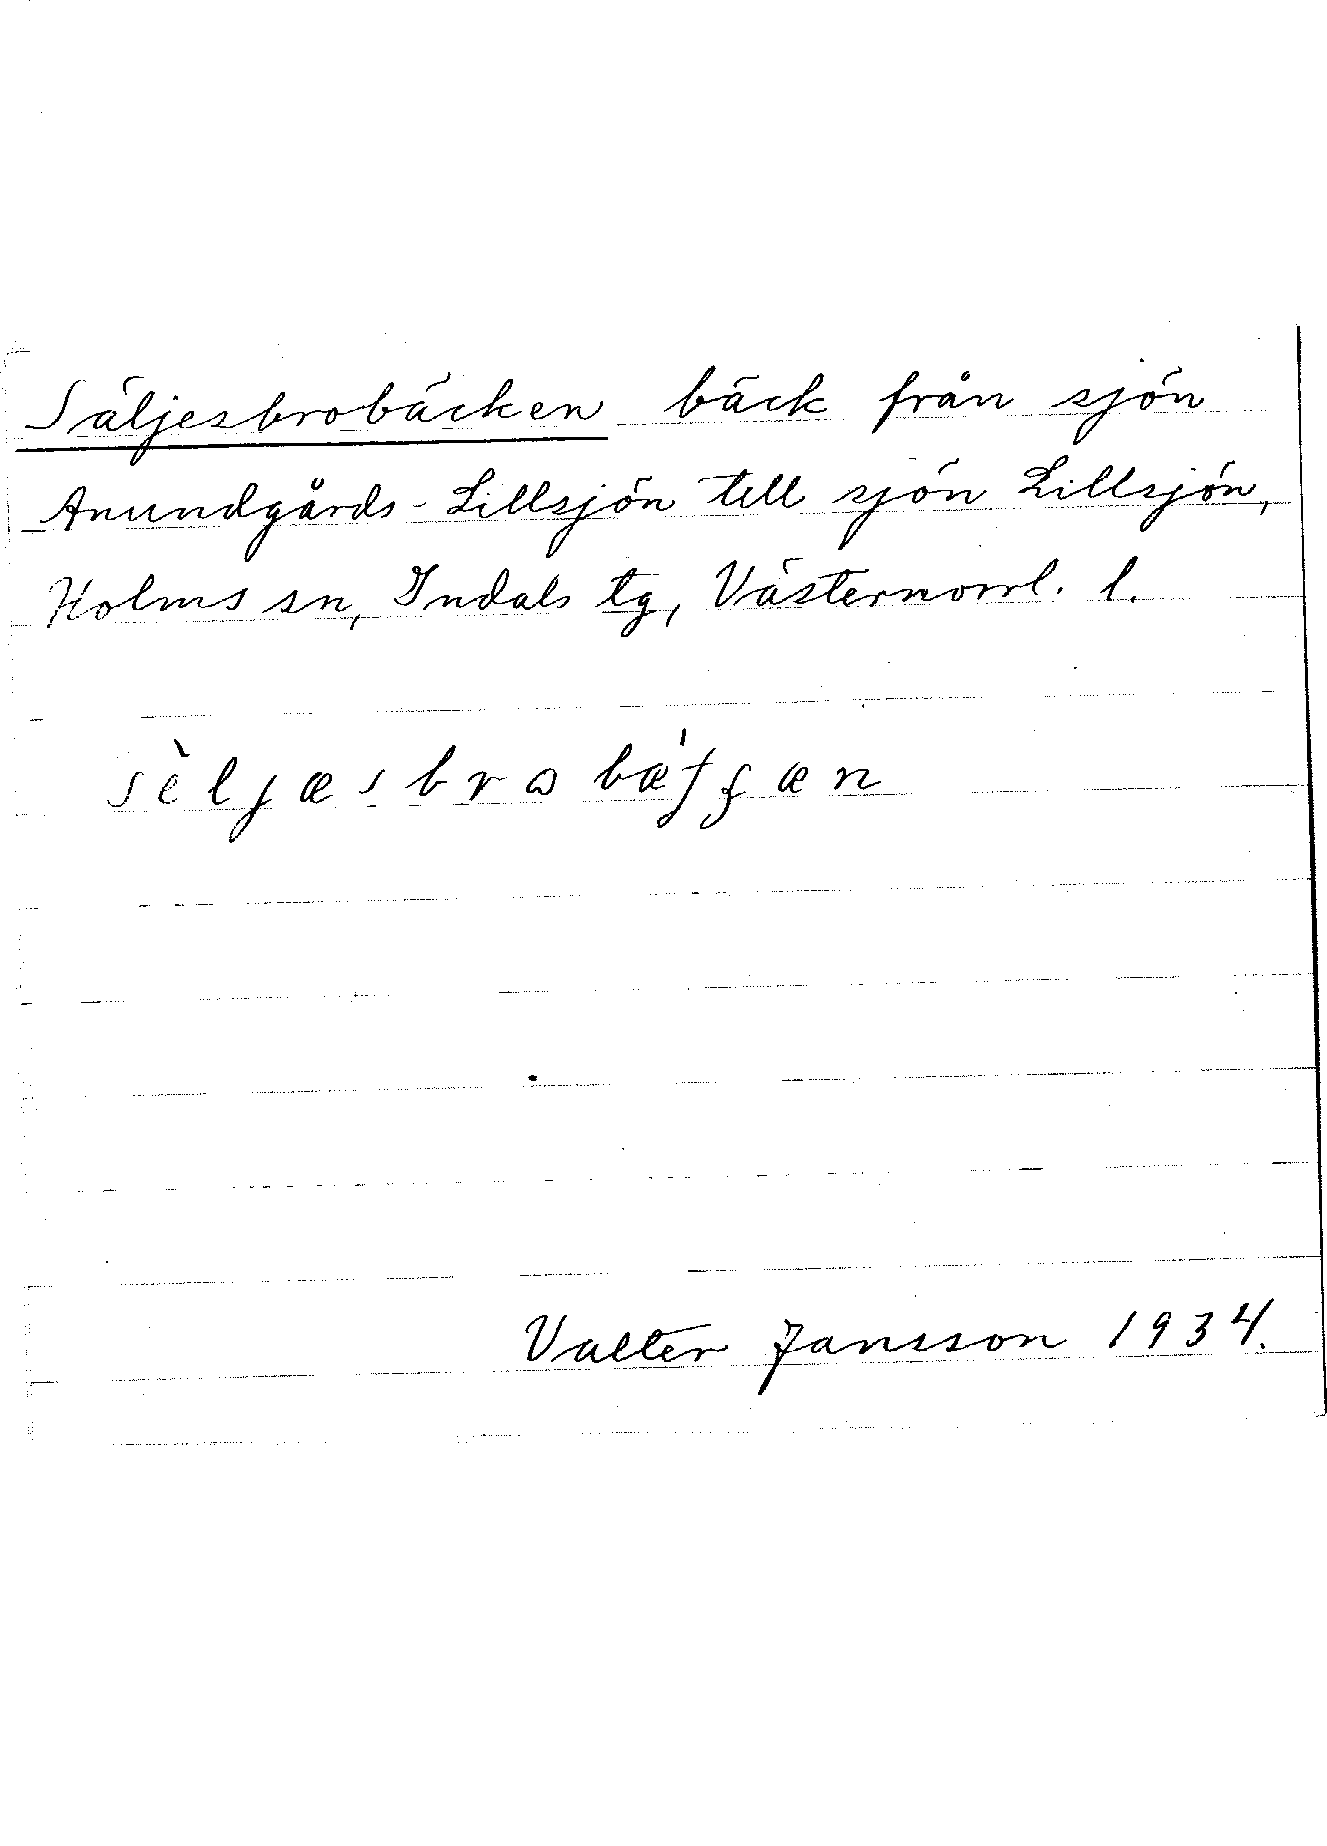 Säljesbrobäcken bäck från sjön
Anundgårds-Lillsjön till sjön Lillsjön,
Holms sn, Indals tg, Västernorrl. l.
Valter Jansson 1934.